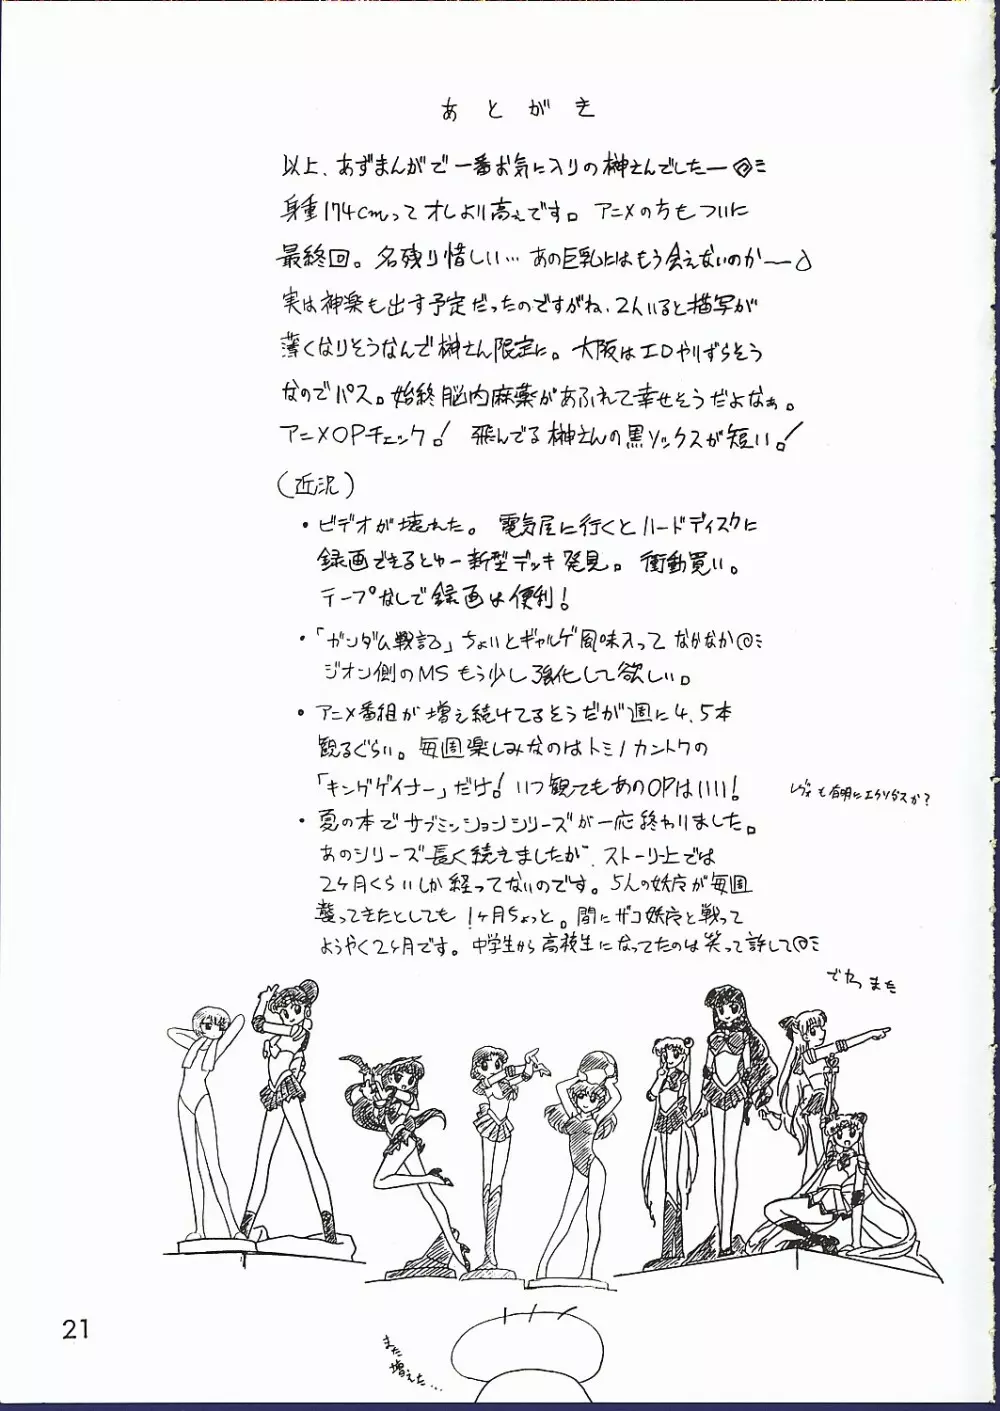 あとがき
以上、あずまんがで一番お気に入りの榊さんでしたー
身重174cmってオレより高ぇです。アニメの方もついに
最終回。名残り惜しい…あの巨乳にはもう会えないのかー
実は神楽も出す予定だったのですがね、2人いると描写が
薄くなりそうなんで榊さん限定に。大阪はエロやりずらそう
なのでパス。始終脳内麻薬があふれて幸せそうだよなぁ。
アニメOPチェック! 飛んでる榊さんの黒ソックスが短い!
(近況)
・ビデオが壊れた。電気屋に行くとハードディスクに
録画できるとゆー新型デッキ発見。衝動買い。
テープなしで録画は便利!
・「ガンダム戦記」ちょいとギャルゲ風味入ってなかなか
ジオン側のMSもう少し強化して欲しい。
・アニメ番組が増え続けてるそうだが週に4,5本
観るぐらい。毎週楽しみなのはトミノカントクの
「キングゲイナー」だけ! いつ観てもあのOPはいい!
レヴィも有明にエクソダスか?
・夏の本でサブミッションシリーズが一応終わりました。
あのシリーズ長く続えましたが、ストーリ上では
2ヶ月くらいしか経ってないのです。5人の妖魔が毎週
襲ってきたとしても1ヶ月ちょっと。間にザコ妖魔と戦って
ようやく2ヶ月です。中学生から高校生になってたのは笑って許して
でわっまた
また
増えた...
21